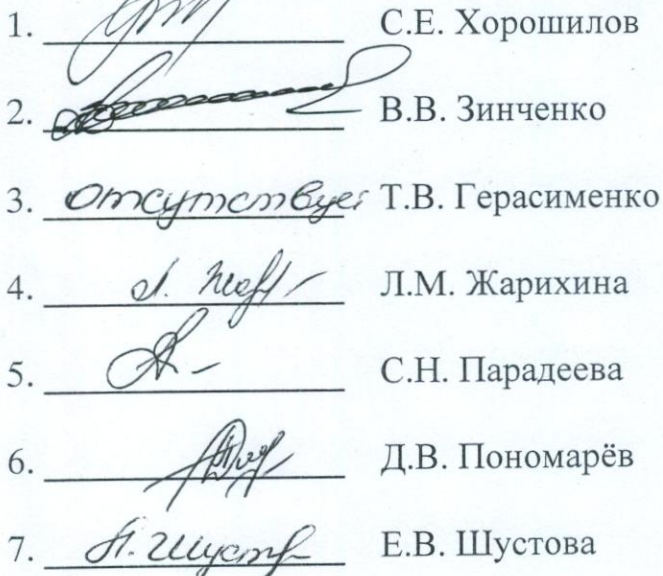 1. С.Е. Хорошилов
2. В.В. Зинченко
3. Отсутствует Т.В. Герасименко
4. Л.М. Жарихина
5. С.Н. Парадеева
6. Д.В. Пономарёв
7. Е.В. Шустова